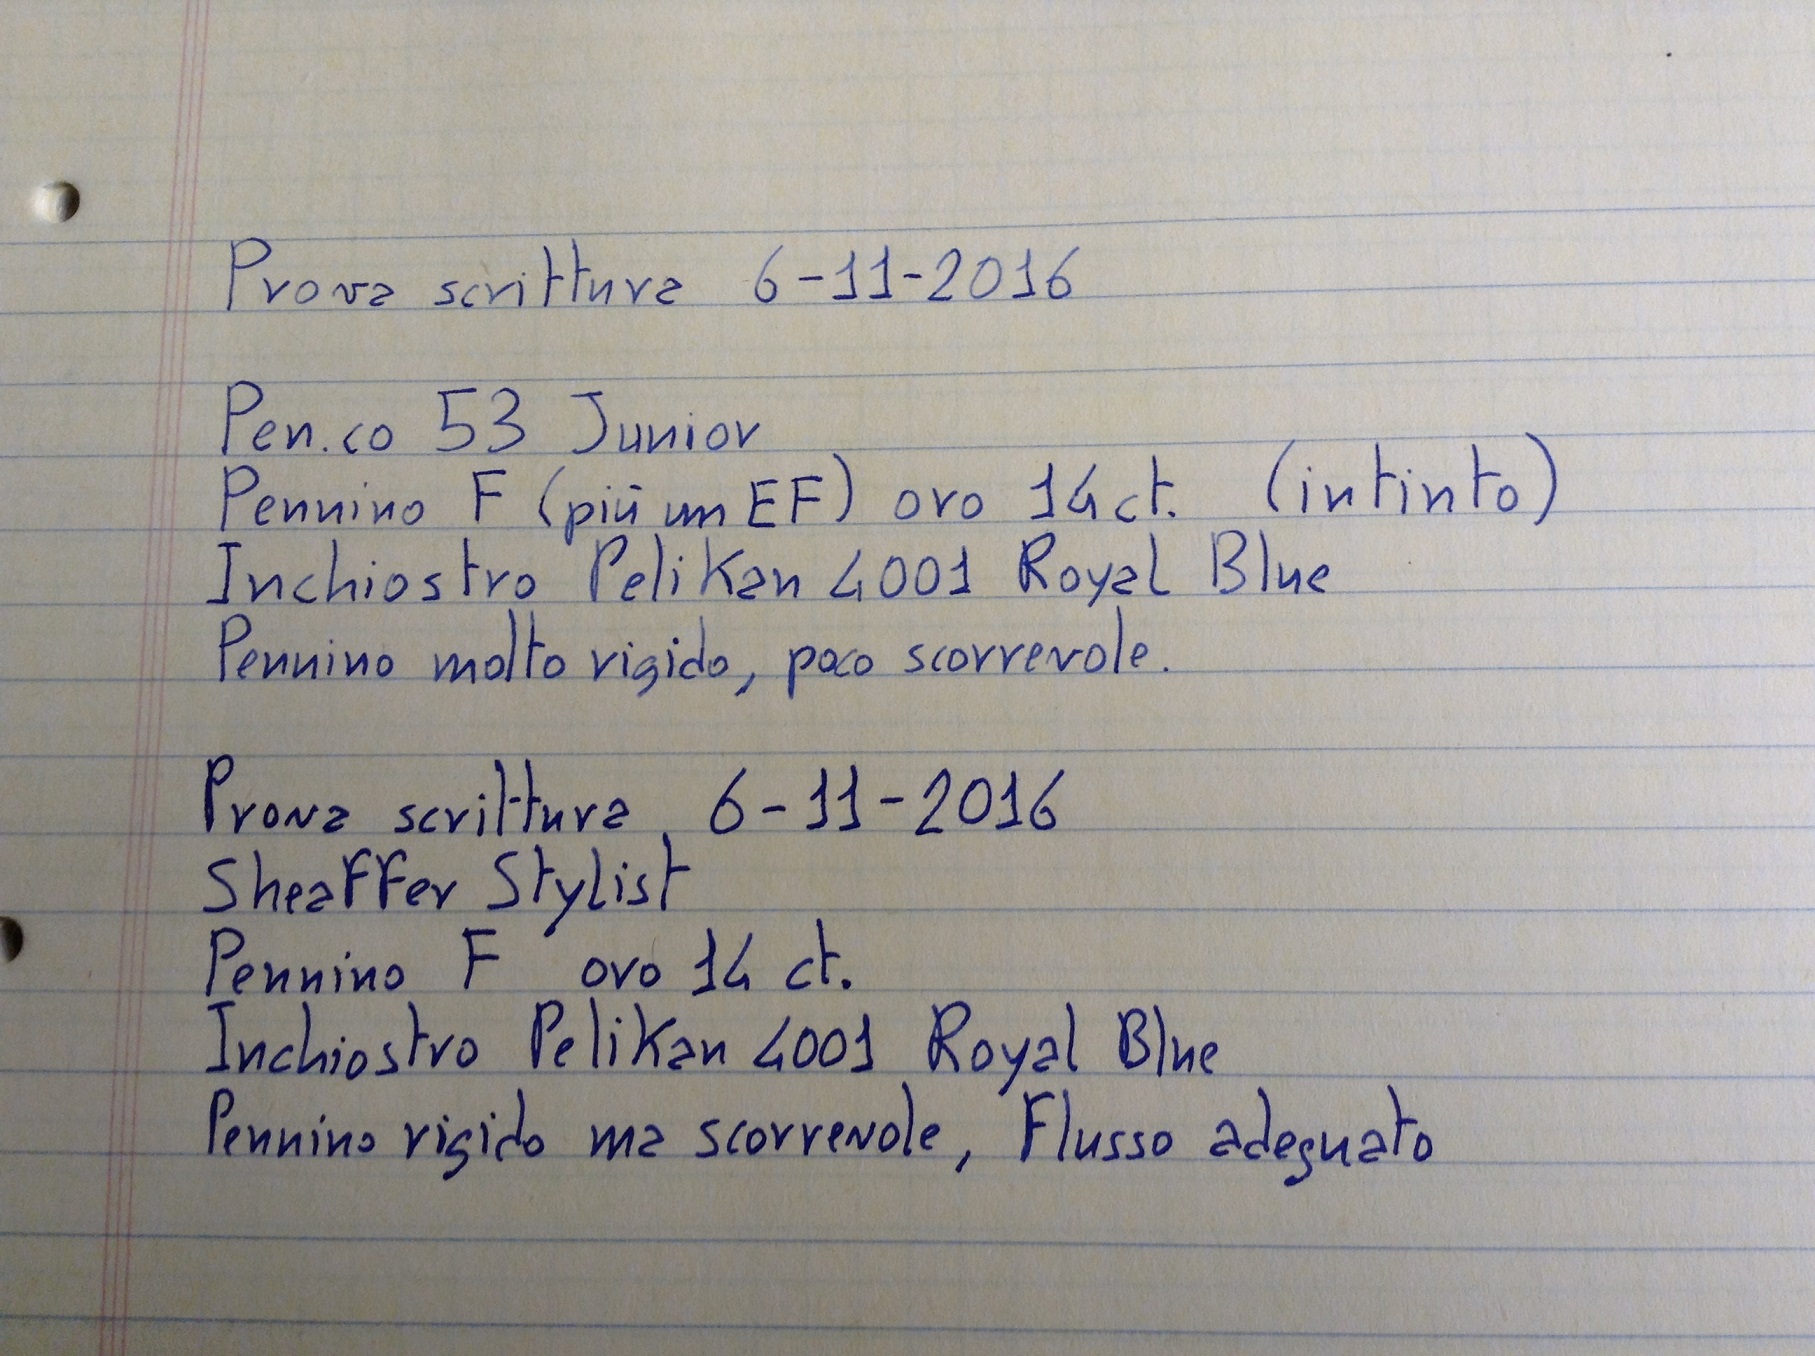 Prova scrittura 6-11-2016
Pen.co 53 Junior
Pennino F (più un EF) oro 14 ct. (intinto)
Inchiostro Pelikan 4001 Royal Blue
Pennino molto rigido, poco scorrevole.
Prova scrittura 6-11-2016
Sheaffer Stylist
Pennino F oro 14 ct.
Inchiostro Pelikan 4001 Royal Blue
Pennino rigido ma scorrevole, Flusso adeguato